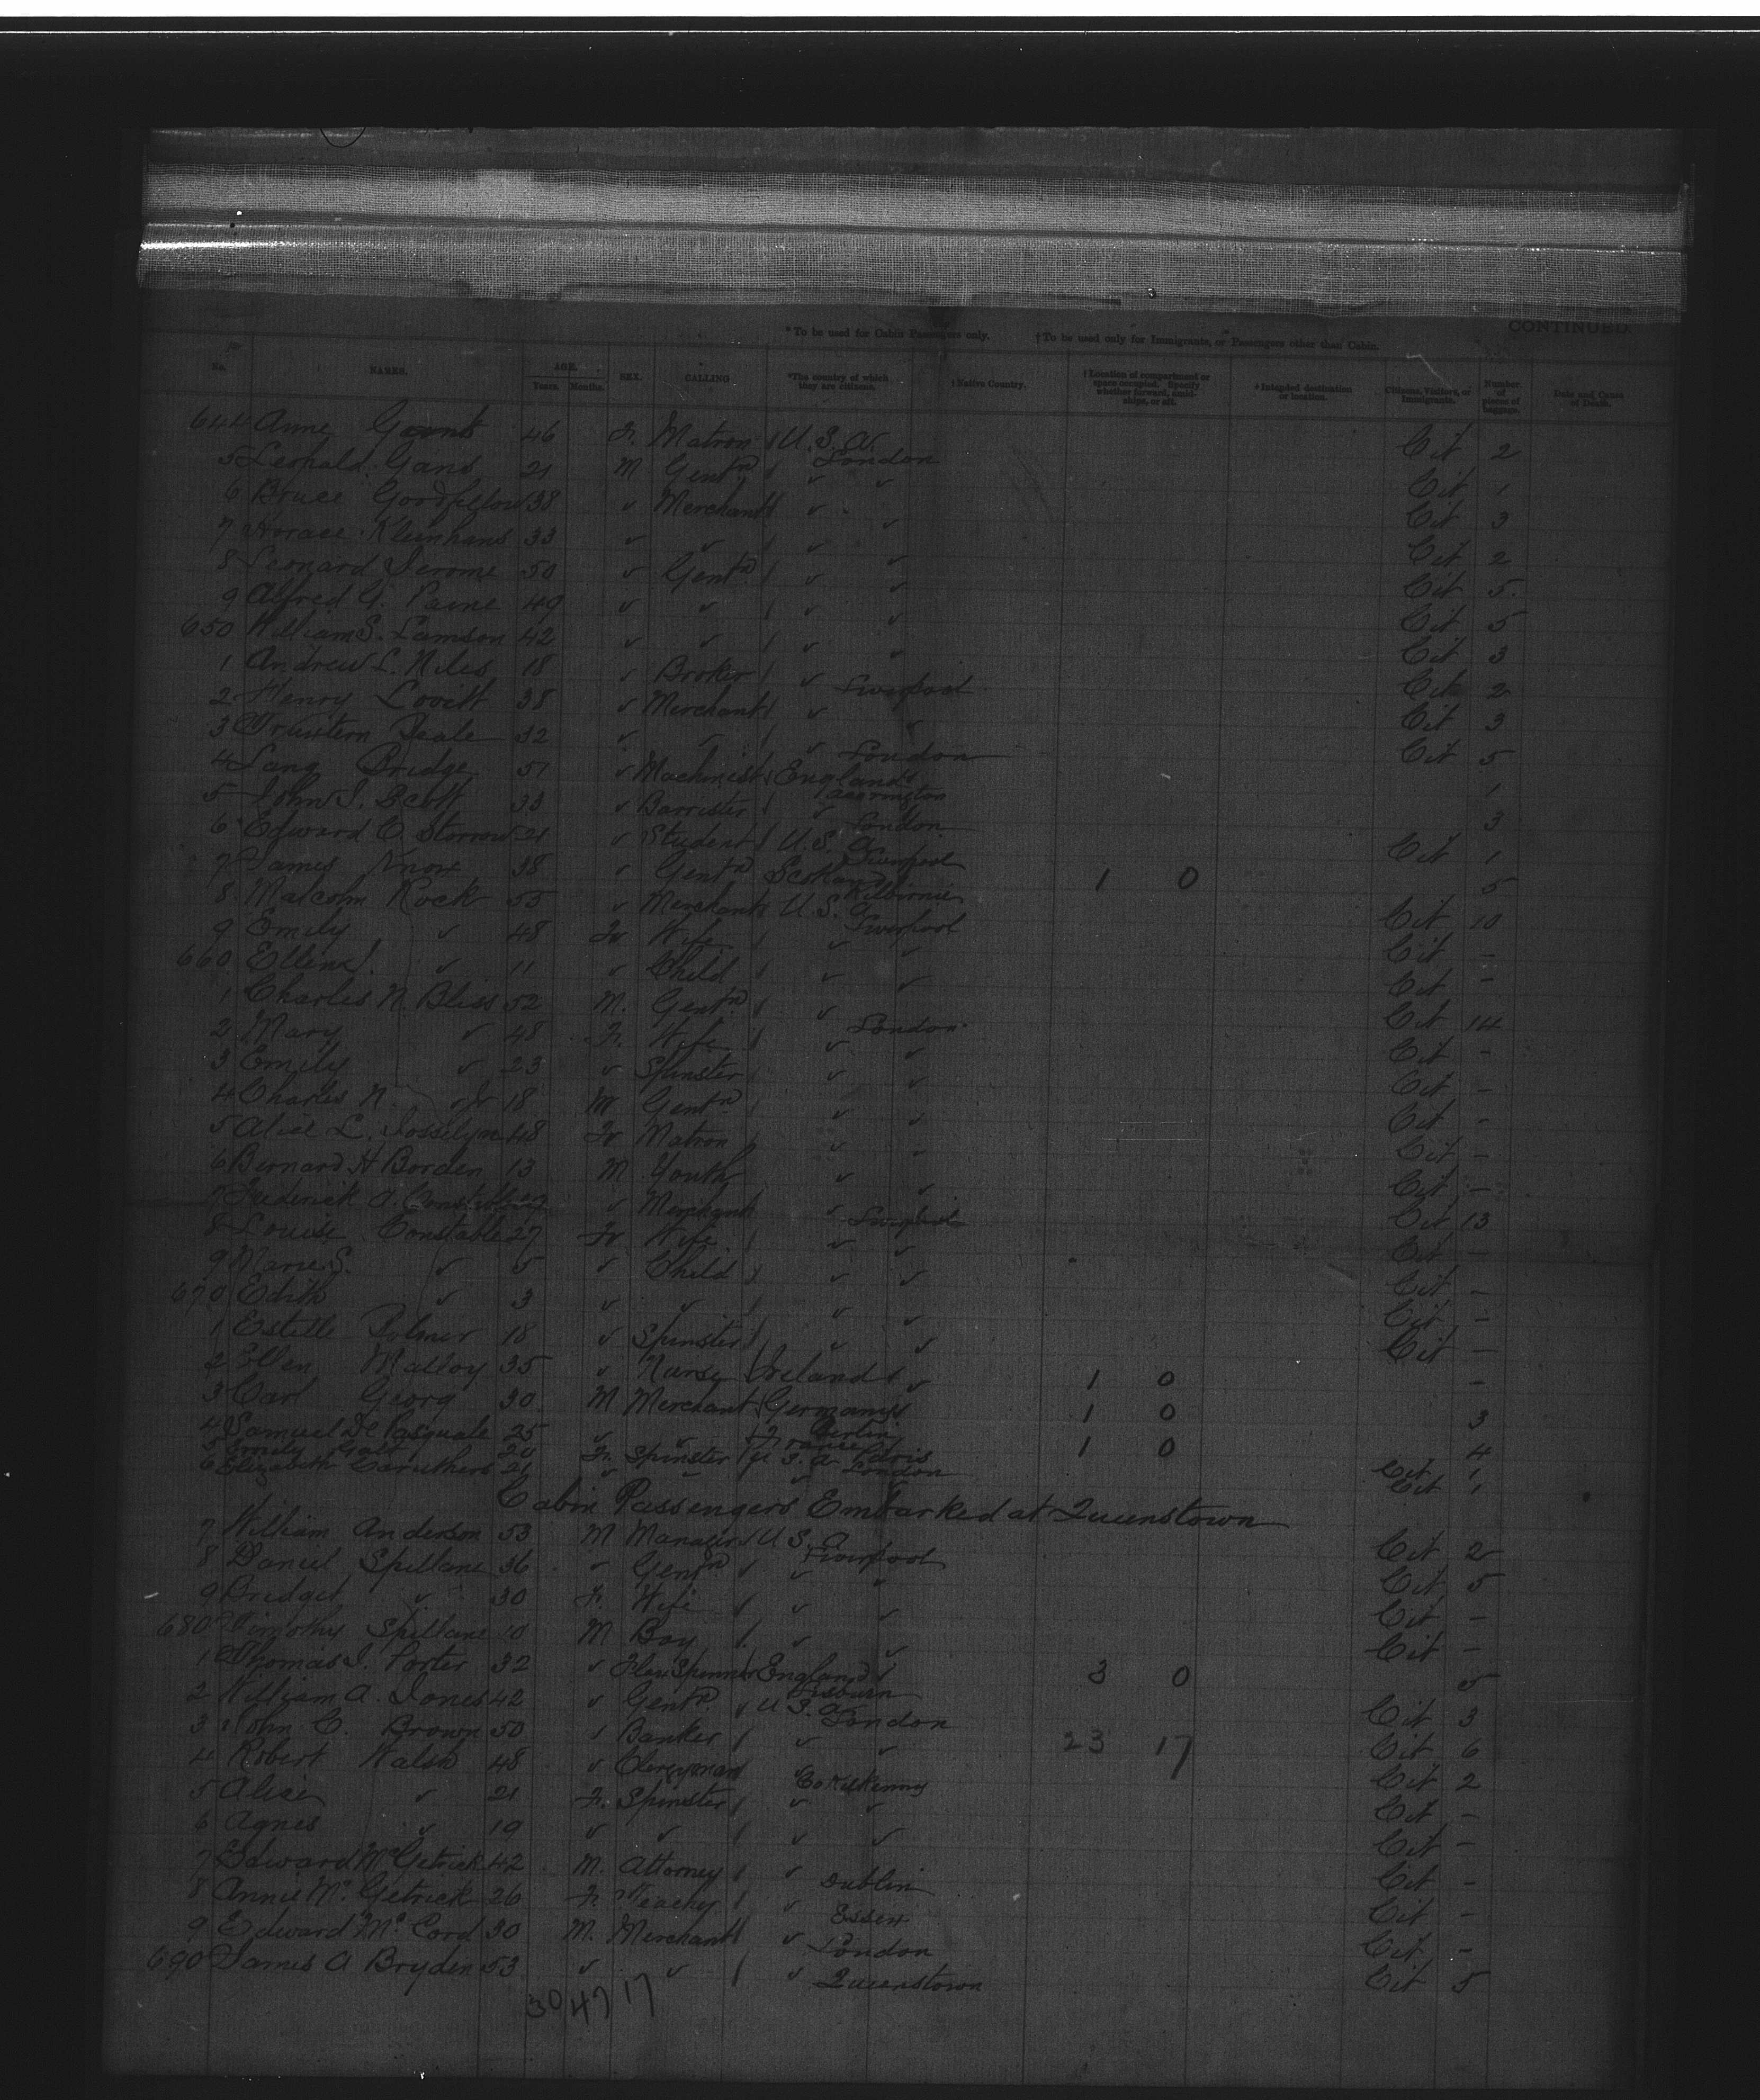 CONTINUED.
* To be used for Cabin Passengers only. † To be used only for Immigrants, or Passengers other than Cabin.
No. NAMES. AGE. Years. Months. SEX. CALLING *The country of which they are citizens. † Native Country. † Location of compartment or space occupied. Specify whether forward, amidships, or aft. † Intended destination or location. Citizens, Visitors, or Immigrants. Number of pieces of baggage. Date and Cause of Death.
644 Anne 46 Fr. Matron U.S.A. London Cit 2
5 Leopald Gans 21 M Gentn ✓ ✓ Cit 1
6 Bruce Goodfellow 38 ✓ Merchant ✓ ✓ Cit 3
7 Horace Kleinhans 33 ✓ ✓ ✓ ✓ Cit 2
8 Leonard Jerome 50 ✓ Gentn ✓ ✓ Cit 5
9 Alfred G. Paine 49 ✓ ✓ ✓ ✓ Cit 5
650 William S. Lamson 42 ✓ ✓ ✓ ✓ Cit 3
1 Andrew L. Niles 18 ✓ Broker ✓ Liverpool Cit 2
2 Henry Lovitt 38 ✓ Merchant ✓ ✓ Cit 3
3 Truxtern Beale 32 ✓ ✓ ✓ London Cit 5
4 Lang Bridge 51 ✓ Machinist England Accrington 1
5 John S. Scott 33 ✓ Barrister ✓ London 3
6 Edward C. Storrow 21 ✓ Student U.S.A. Liverpool Cit 1
7 James Knox 38 ✓ Gentn Scotland Kilbirnie 1 0 5
8 Malcolm Rock 55 ✓ Merchant U.S.A. Liverpool Cit 10
9 Emily ✓ 48 Fr Wife ✓ ✓ Cit -
660 ✓ 11 ✓ Child ✓ ✓ Cit -
1 Charles N. Bliss 52 M. Gentn ✓ London Cit 14
2 Mary ✓ 48 Fr. Wife ✓ ✓ Cit -
3 Emily ✓ 23 ✓ Spinster ✓ ✓ Cit -
4 Charles N. ✓ Jr 18 M Gentn ✓ ✓ Cit -
5 Alice L. Josselyn 48 Fr Matron ✓ ✓ Cit -
6 Bernard H Borden 13 M Youth ✓ ✓ Cit -
7 Frederick A. Constable ✓ Merchant ✓ Liverpool Cit 13
8 Louise Constable 27 Fr Wife ✓ ✓ Cit -
9 Marie S. ✓ 5 ✓ Child ✓ ✓ Cit -
670 Edith ✓ 3 ✓ ✓ ✓ ✓ Cit -
1 Estelle Palmer 18 ✓ Spinster ✓ ✓ Cit -
2 Ellen Malloy 35 ✓ Nurse Ireland ✓ 1 0 -
3 Carl Georg 30 M Merchant Germany Berlin 1 0 3
4 Samuel De Pasquale 25 ✓ ✓ France Paris 1 0 4
5 Emily Galt 20 Fr. Spinster U.S.A. London Cit 1
6 Elizabeth Caruthers 21 ✓ ✓ ✓ Cit 1
Cabin Passengers Embarked at Queenstown
7 William Anderson 53 M Manager U.S.A. Liverpool Cit 2
8 Daniel Spillane 36 ✓ Gentn ✓ ✓ Cit 5
9 Bridget ✓ 30 Fr. Wife ✓ ✓ Cit -
680 Timothy Spillane 10 M Boy ✓ ✓ Cit -
1 Thomas J. Porter 32 ✓ Flax Spinner England Lisburn 3 0 5
2 William A. Jones 42 ✓ Gentn U.S.A. London Cit 3
3 John C. Brown 50 ✓ Banker ✓ ✓ 23 17 Cit 6
4 Robert Walsh 48 ✓ Clergyman ✓ Co Kilkenny Cit 2
5 Alice ✓ 21 Fr. Spinster ✓ ✓ Cit -
6 Agnes ✓ 19 ✓ ✓ ✓ ✓ Cit -
7 Edward McGetrick 42 M. Attorney ✓ Dublin Cit -
8 Annie Mc Getrick 26 Fr. ✓ Essex Cit -
9 Edward Mc Cord 30 M. Merchant ✓ London Cit -
690 James A Bryden 53 ✓ ✓ ✓ Queenstown Cit 5
30 47 17